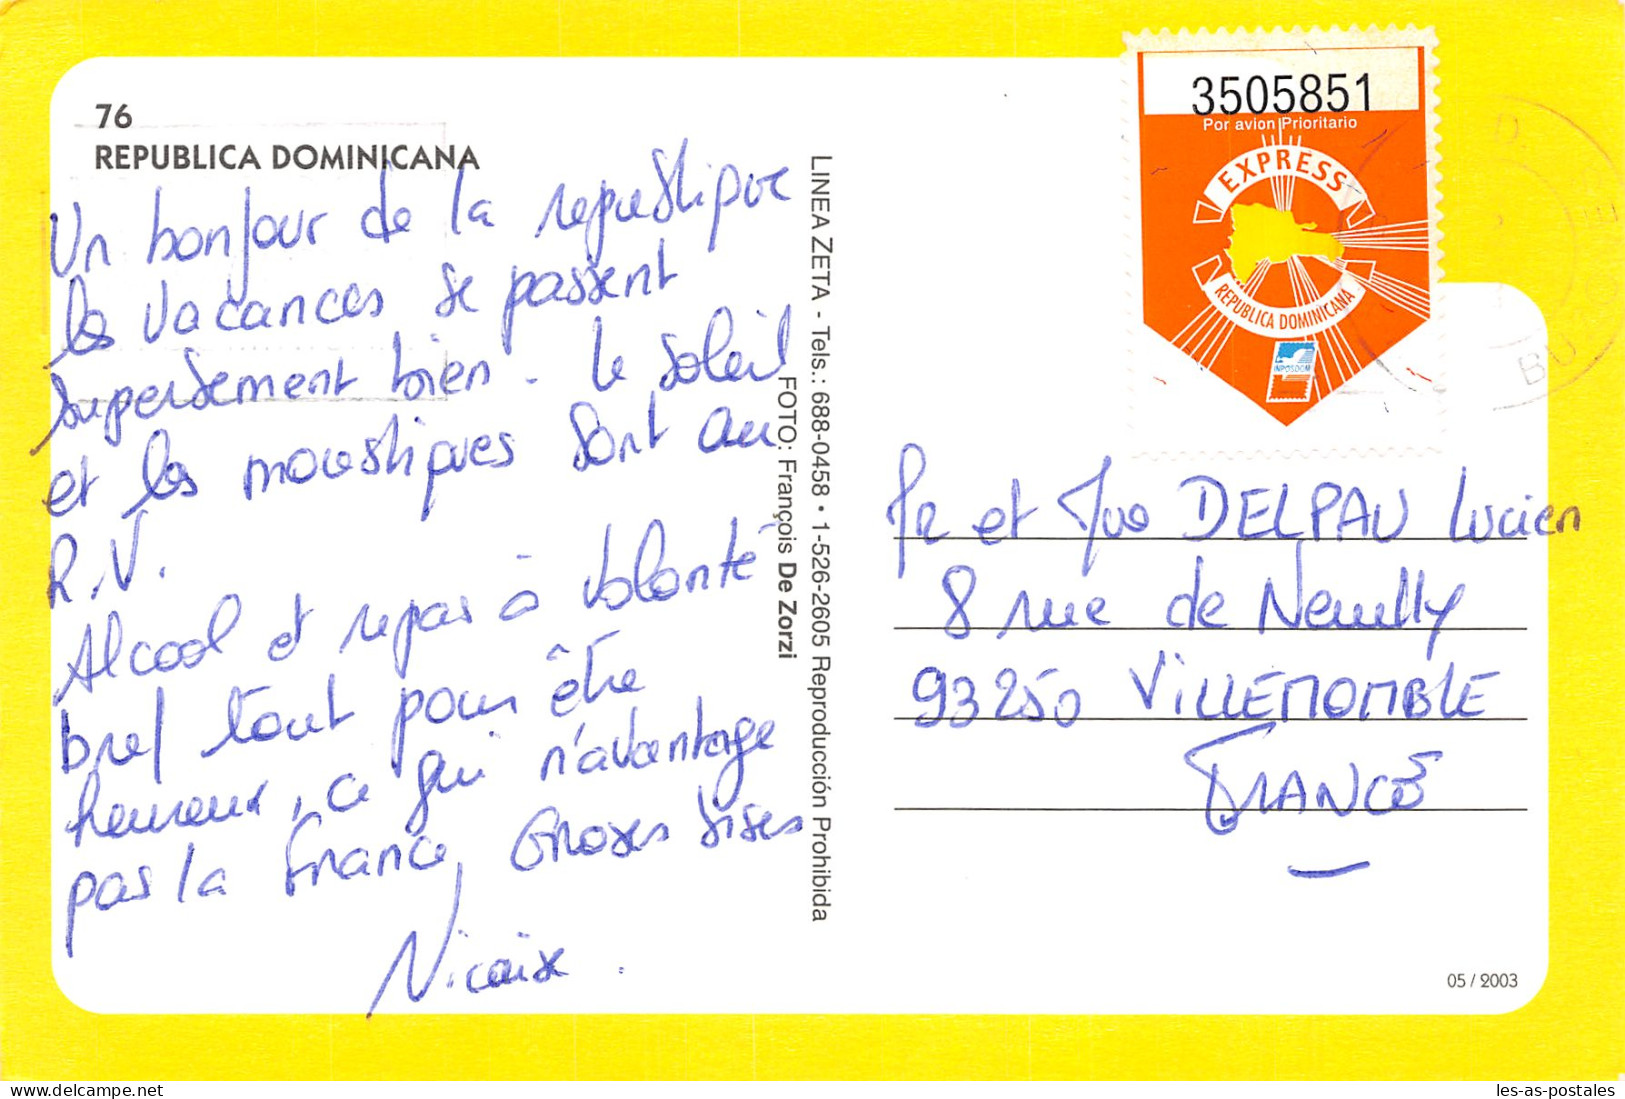 76
REPUBLICA DOMINICANA
Un bonjour de la republique
les vacances se passent
superbement bien. le soleil
et les moustiques sont au
R.V.
Alcool et repas à volonté
bref tout pour être
heureux, ce qui n'avantage
pas la France, Grosses bises
LINEA ZETA - Tels.: 688-0458 • 1-526-2605 Reproducción Prohibida
FOTO: François De Zorzi
3505851
Por avion Prioritario
EXPRESS
REPUBLICA DOMINICANA
INPOSDOM
Mr et Mme DELPAU Lucien
8 rue de Neuilly
93250 ViLLEMOMBLE
FRANCE
05 / 2003
les-as-postales